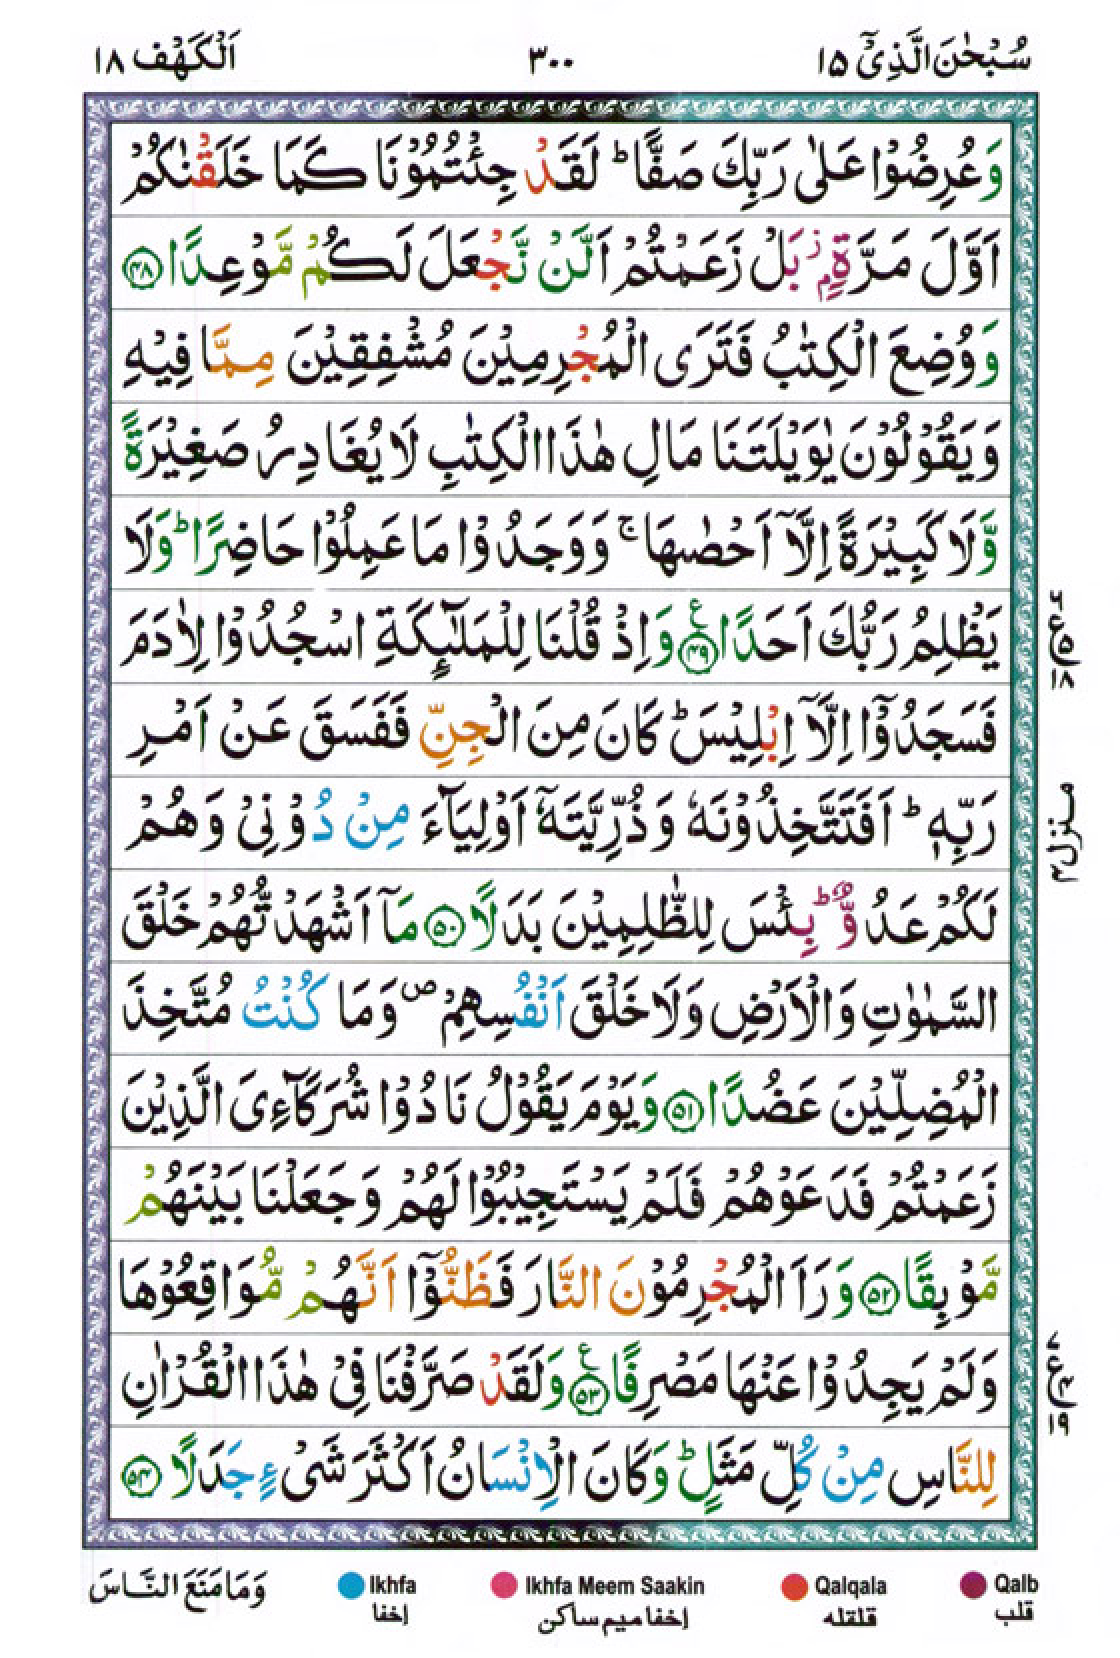 سُبْحٰنَ الَّذِیْۤ ۱۵
۳۰۰
اَلْكَهْف ۱۸
وَعُرِضُوْا عَلٰی رَبِّكَ صَفًّا ؕ لَقَدْ جِئْتُمُوْنَا كَمَا خَلَقْنٰكُمْ
اَوَّلَ مَرَّةٍۭ ؗ بَلْ زَعَمْتُمْ اَلَّنْ نَّجْعَلَ لَكُمْ مَّوْعِدًا ﴿۴۸﴾
وَوُضِعَ الْكِتٰبُ فَتَرَی الْمُجْرِمِیْنَ مُشْفِقِیْنَ مِمَّا فِیْهِ
وَیَقُوْلُوْنَ یٰوَیْلَتَنَا مَالِ هٰذَا الْكِتٰبِ لَا یُغَادِرُ صَغِیْرَةً
وَّلَا كَبِیْرَةً اِلَّاۤ اَحْصٰىهَا ۚ وَوَجَدُوْا مَا عَمِلُوْا حَاضِرًا ؕ وَلَا
یَظْلِمُ رَبُّكَ اَحَدًا ﴿۴۹﴾ ع وَاِذْ قُلْنَا لِلْمَلٰٓىِٕكَةِ اسْجُدُوْا لِاٰدَمَ
فَسَجَدُوْۤا اِلَّاۤ اِبْلِیْسَ ؕ كَانَ مِنَ الْجِنِّ فَفَسَقَ عَنْ اَمْرِ
رَبِّهٖ ؕ اَفَتَتَّخِذُوْنَهٗ وَذُرِّیَّتَهٗۤ اَوْلِیَآءَ مِنْ دُوْنِیْ وَهُمْ
لَكُمْ عَدُوٌّ ؕ بِئْسَ لِلظّٰلِمِیْنَ بَدَلًا ﴿۵۰﴾ مَاۤ اَشْهَدْتُّهُمْ خَلْقَ
السَّمٰوٰتِ وَالْاَرْضِ وَلَا خَلْقَ اَنْفُسِهِمْ ۪ وَمَا كُنْتُ مُتَّخِذَ
الْمُضِلِّیْنَ عَضُدًا ﴿۵۱﴾ وَیَوْمَ یَقُوْلُ نَادُوْا شُرَكَآءِیَ الَّذِیْنَ
زَعَمْتُمْ فَدَعَوْهُمْ فَلَمْ یَسْتَجِیْبُوْا لَهُمْ وَجَعَلْنَا بَیْنَهُمْ
مَّوْبِقًا ﴿۵۲﴾ وَرَاَ الْمُجْرِمُوْنَ النَّارَ فَظَنُّوْۤا اَنَّهُمْ مُّوَاقِعُوْهَا
وَلَمْ یَجِدُوْا عَنْهَا مَصْرِفًا ﴿۵۳﴾ ع وَلَقَدْ صَرَّفْنَا فِیْ هٰذَا الْقُرْاٰنِ
لِلنَّاسِ مِنْ كُلِّ مَثَلٍ ؕ وَكَانَ الْاِنْسَانُ اَكْثَرَ شَیْءٍ جَدَلًا ﴿۵۴﴾
ع ۵ ۱۸
منزل۴
۷ ع ۱۹
Qalb قلب
Qalqala قلقله
Ikhfa Meem Saakin إخفا ميم ساكن
Ikhfa إخفا
وَمَا مَنَعَ النَّاسَ